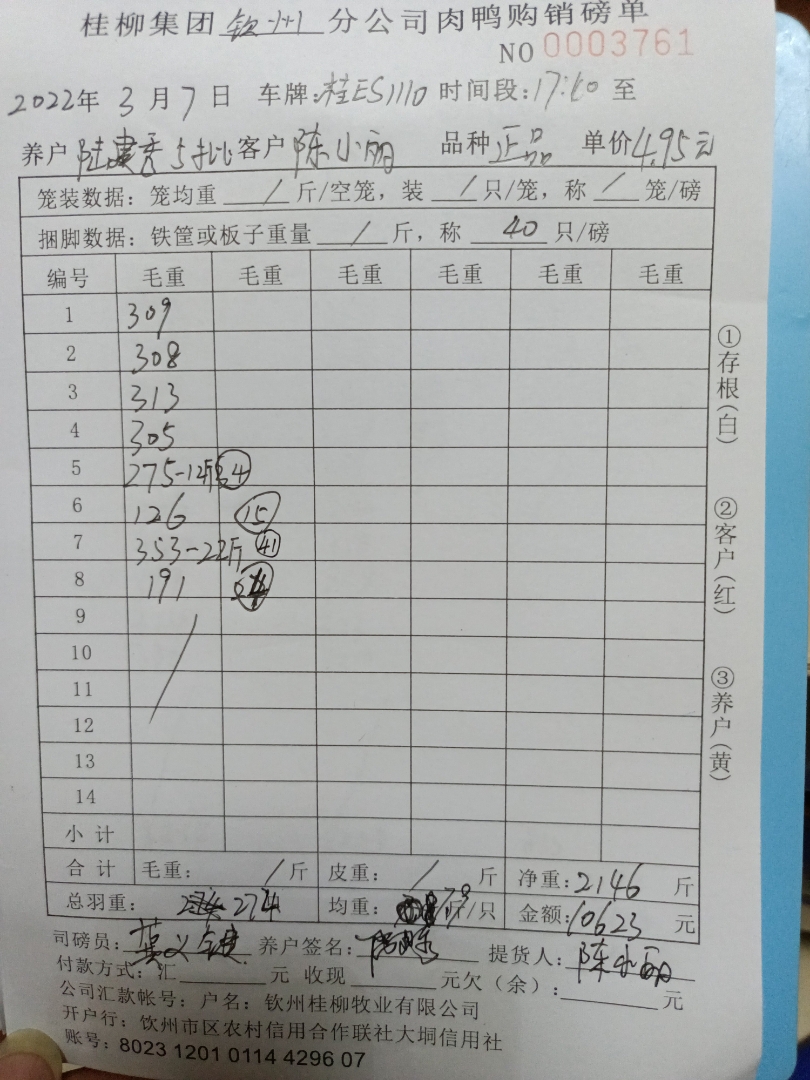 桂柳集团 钦州 分公司肉鸭购销磅单
NO 0003761
2022年 3 月 7 日 车牌:桂ES1110 时间段:17:10 至
养户 陆建秀5批 客户 陈小丽 品种 正品 单价 4.95元
笼装数据：笼均重 / 斤/空笼，装 / 只/笼，称 / 笼/磅
捆脚数据：铁筐或板子重量 / 斤，称 40 只/磅
编号 毛重 毛重 毛重 毛重 毛重 毛重
1 309
2 308
3 313
4 305
5 275-12斤
6 126 15
7 353-22斤 41
8 191
9
10
11
12
13
14
小 计
合 计 毛重： / 斤 皮重： / 斤 净重：2146 斤
总羽重： 274 均重： 斤/只 金额：10623 元
司磅员： 养户签名： 提货人：陈小丽
付款方式：汇 元 收现 元欠（余）： 元
公司汇款帐号：户名：钦州桂柳牧业有限公司
开户行：钦州市区农村信用合作联社大垌信用社
账号：8023 1201 0114 4296 07
①存根(白)
②客户(红)
③养户(黄)